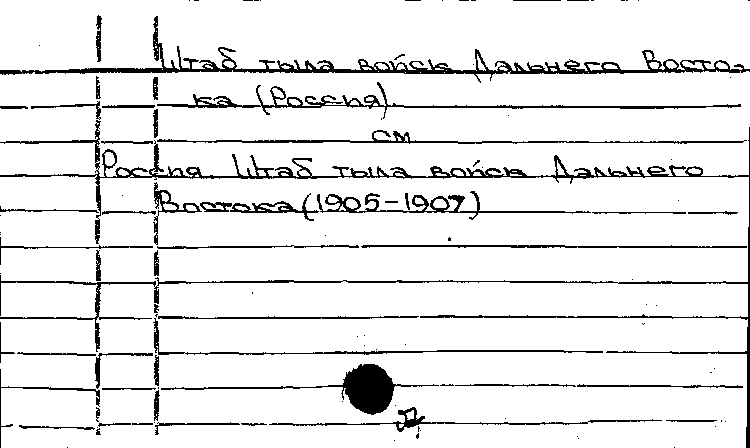 Штаб тыла войск Дальнего Восто-
ка (Россия).
см
Россия. Штаб тыла войск Дальнего
Востока (1905-1907)